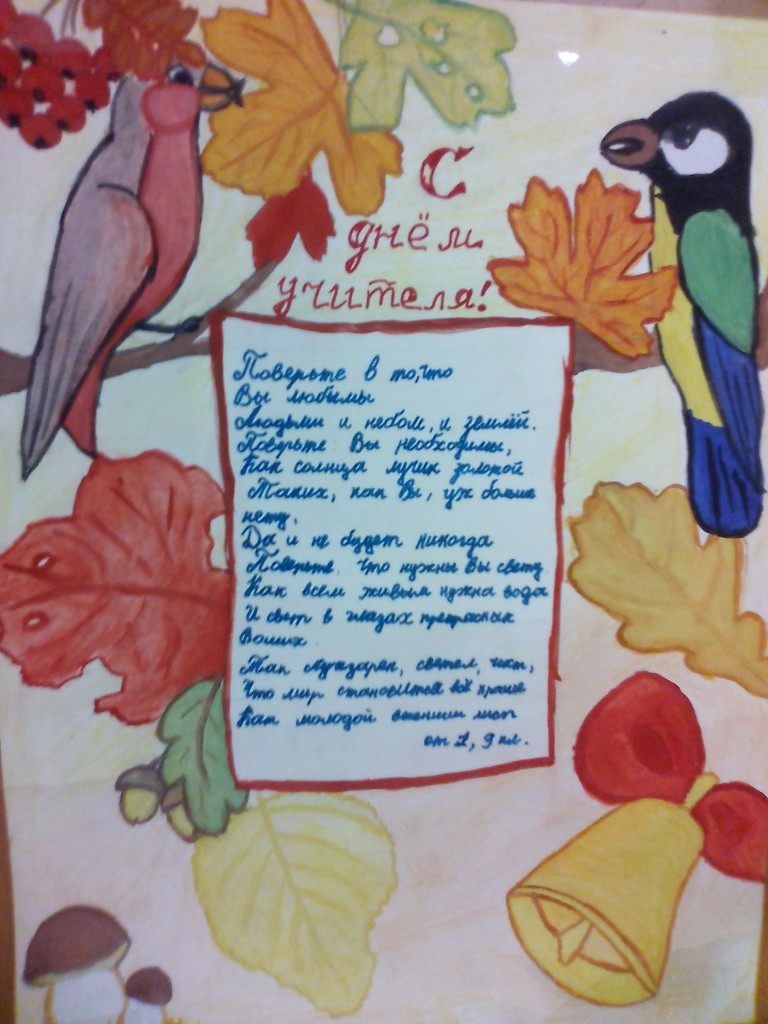 С
днём
учителя!
Поверьте в то,что
Вы любимы
Людьми и небом, и землёй.
Поверьте Вы необходимы,
Как солнца лучик золотой
Таких, как Вы, уж больше
нету.
Да и не будет никогда
Поверьте что нужны Вы свету
Как всем живым нужна вода
И свет в глазах прекрасных
Ваших
Так лучезарен, светел, чист,
Что мир становится всё краше
Как молодой весенний лист
от 1, 9 кл.